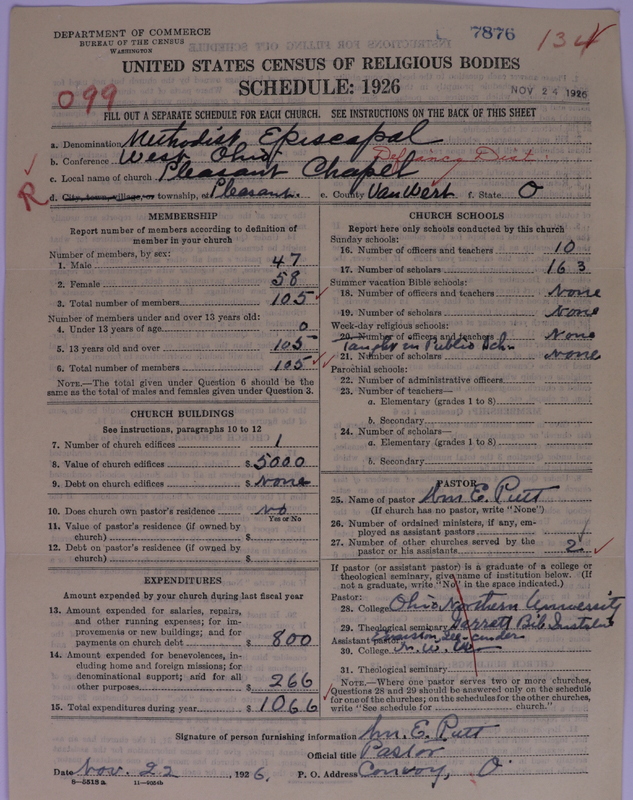 DEPARTMENT OF COMMERCE
BUREAU OF THE CENSUS
WASHINGTON
7876
134
UNITED STATES CENSUS OF RELIGIOUS BODIES
SCHEDULE: 1926
NOV 24 1926
099
FILL OUT A SEPARATE SCHEDULE FOR EACH CHURCH. SEE INSTRUCTIONS ON THE BACK OF THIS SHEET
a. Denomination Methodist Episcapal
b. Conference West Ohio Defiance Dist.
c. Local name of church Pleasant Chapel
R
d. City, town, village, or township, at Pleasant. e. County Van Wert f. State O
MEMBERSHIP
Report number of members according to definition of member in your church
Number of members, by sex:
1. Male 47
2. Female 58
3. Total number of members 105
Number of members under and over 13 years old:
4. Under 13 years of age 0
5. 13 years old and over 105
6. Total number of members 105
NOTE.—The total given under Question 6 should be
same as the total of males and females given under Question 3.
CHURCH BUILDINGS
See instructions, paragraphs 10 to 12
7. Number of church edifices 1
8. Value of church edifices $ 5000
9. Debt on church edifices $ None
10. Does church own pastor's residence No
Yes or No
11. Value of pastor's residence (if owned by
church) $
12. Debt on pastor's residence (if owned by
church) $
EXPENDITURES
Amount expended by your church during last fiscal year
13. Amount expended for salaries, repairs,
and other running expenses; for im-
provements or new buildings; and for
payments on church debt $ 800
14. Amount expended for benevolences, in-
cluding home and foreign missions; for
denominational support; and for all
other purposes $ 266
15. Total expenditures during year $ 1066
CHURCH SCHOOLS
Report here only schools conducted by this church
Sunday schools:
16. Number of officers and teachers 10
17. Number of scholars 163
Summer vacation Bible schools:
18. Number of officers and teachers None
19. Number of scholars None
Week-day religious schools:
20. Number of officers and teachers None
Taught in Public Sch.
21. Number of scholars None
Parochial schools:
22. Number of administrative officers
23. Number of teachers—
a. Elementary (grades 1 to 8)
b. Secondary
24. Number of scholars—
a. Elementary (grades 1 to 8)
b. Secondary
PASTOR
25. Name of pastor Wm E. Putt
(If church has no pastor, write "None")
26. Number of ordained ministers, if any, em-
ployed as assistant pastors
27. Number of other churches served by the
pastor or his assistants 2
If pastor (or assistant pastor) is a graduate of a college or
theological seminary, give name of institution below. (If
not a graduate, write "No" in the space indicated.)
Pastor:
28. College Ohio Northern University
29. Theological seminary Garrett Bib Institute
Assistant pastor: Evanston
30. College N. W. Uni
31. Theological seminary
NOTE.—Where one pastor serves two or more churches,
Questions 28 and 29 should be answered only on the schedule
for one of the churches; on the schedules for the other churches,
write "See schedule for church."
Signature of person furnishing information Wm. E. Putt
Official title Pastor
Date Nov. 22, 1926. P. O. Address Convoy, O.
8—5518 a 11—9054b